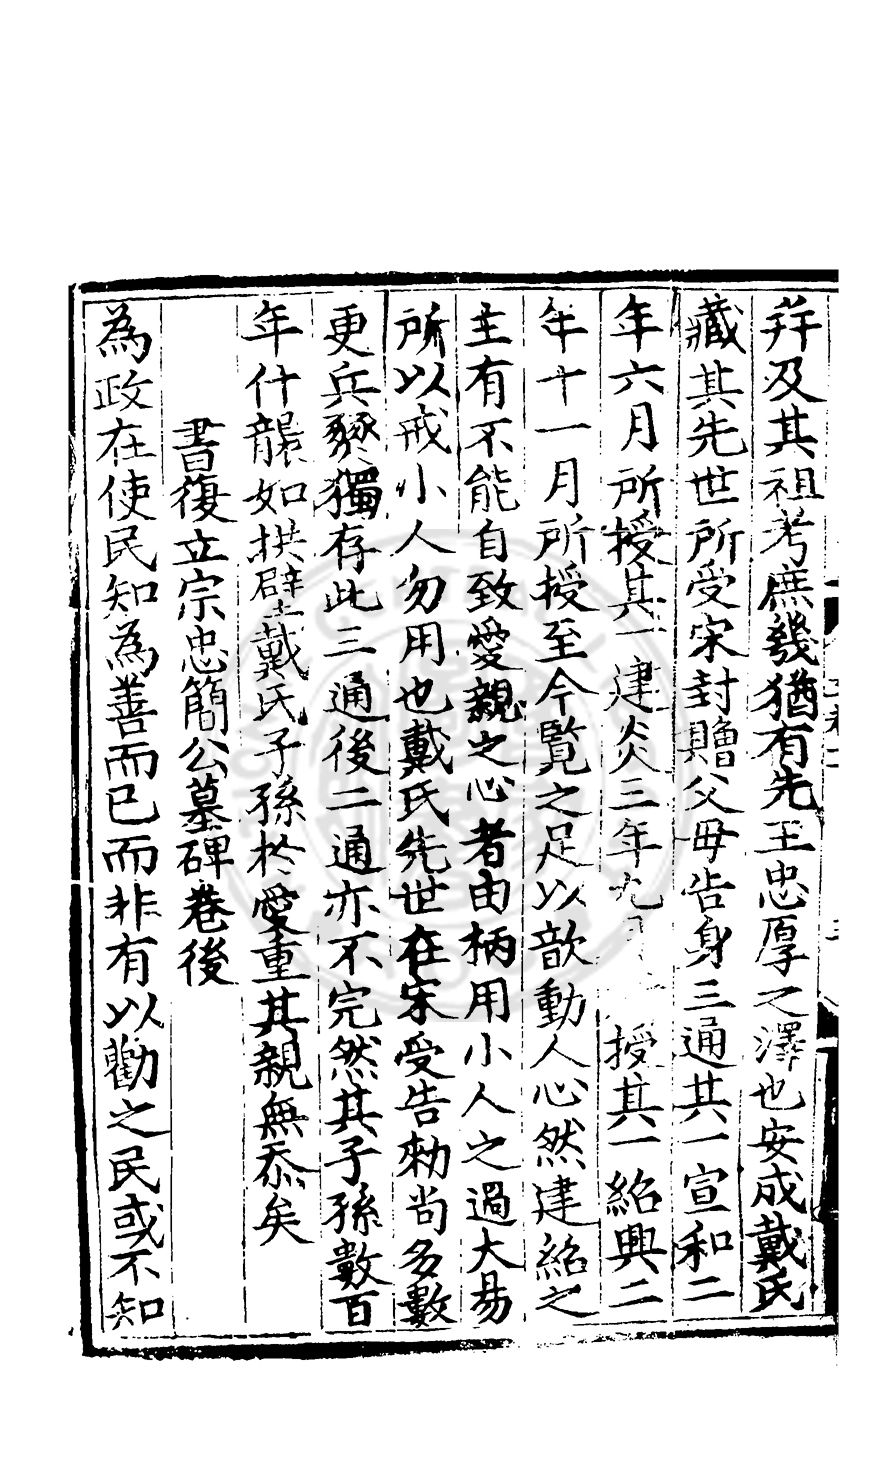 并及其祖考庶幾猶有先王忠厚之澤也安成戴氏
藏其先世所受宋封贈父母告身三通其一宣和二
年六月所授其一建炎三年九月授其一紹興二
年十一月所授至今覽之足以歆動人心然建紹之
主有不能自致愛親之心者由柄用小人之過大易
所以戒小人勿用也戴氏先世在宋受告勑尚多數
更兵燹獨存此三通後二通亦不完然其子孫數百
年什襲如拱璧戴氏子孫於愛重其親無忝矣
書復立宗忠簡公墓碑卷後
為政在使民知為善而已而非有以勸之民或不知